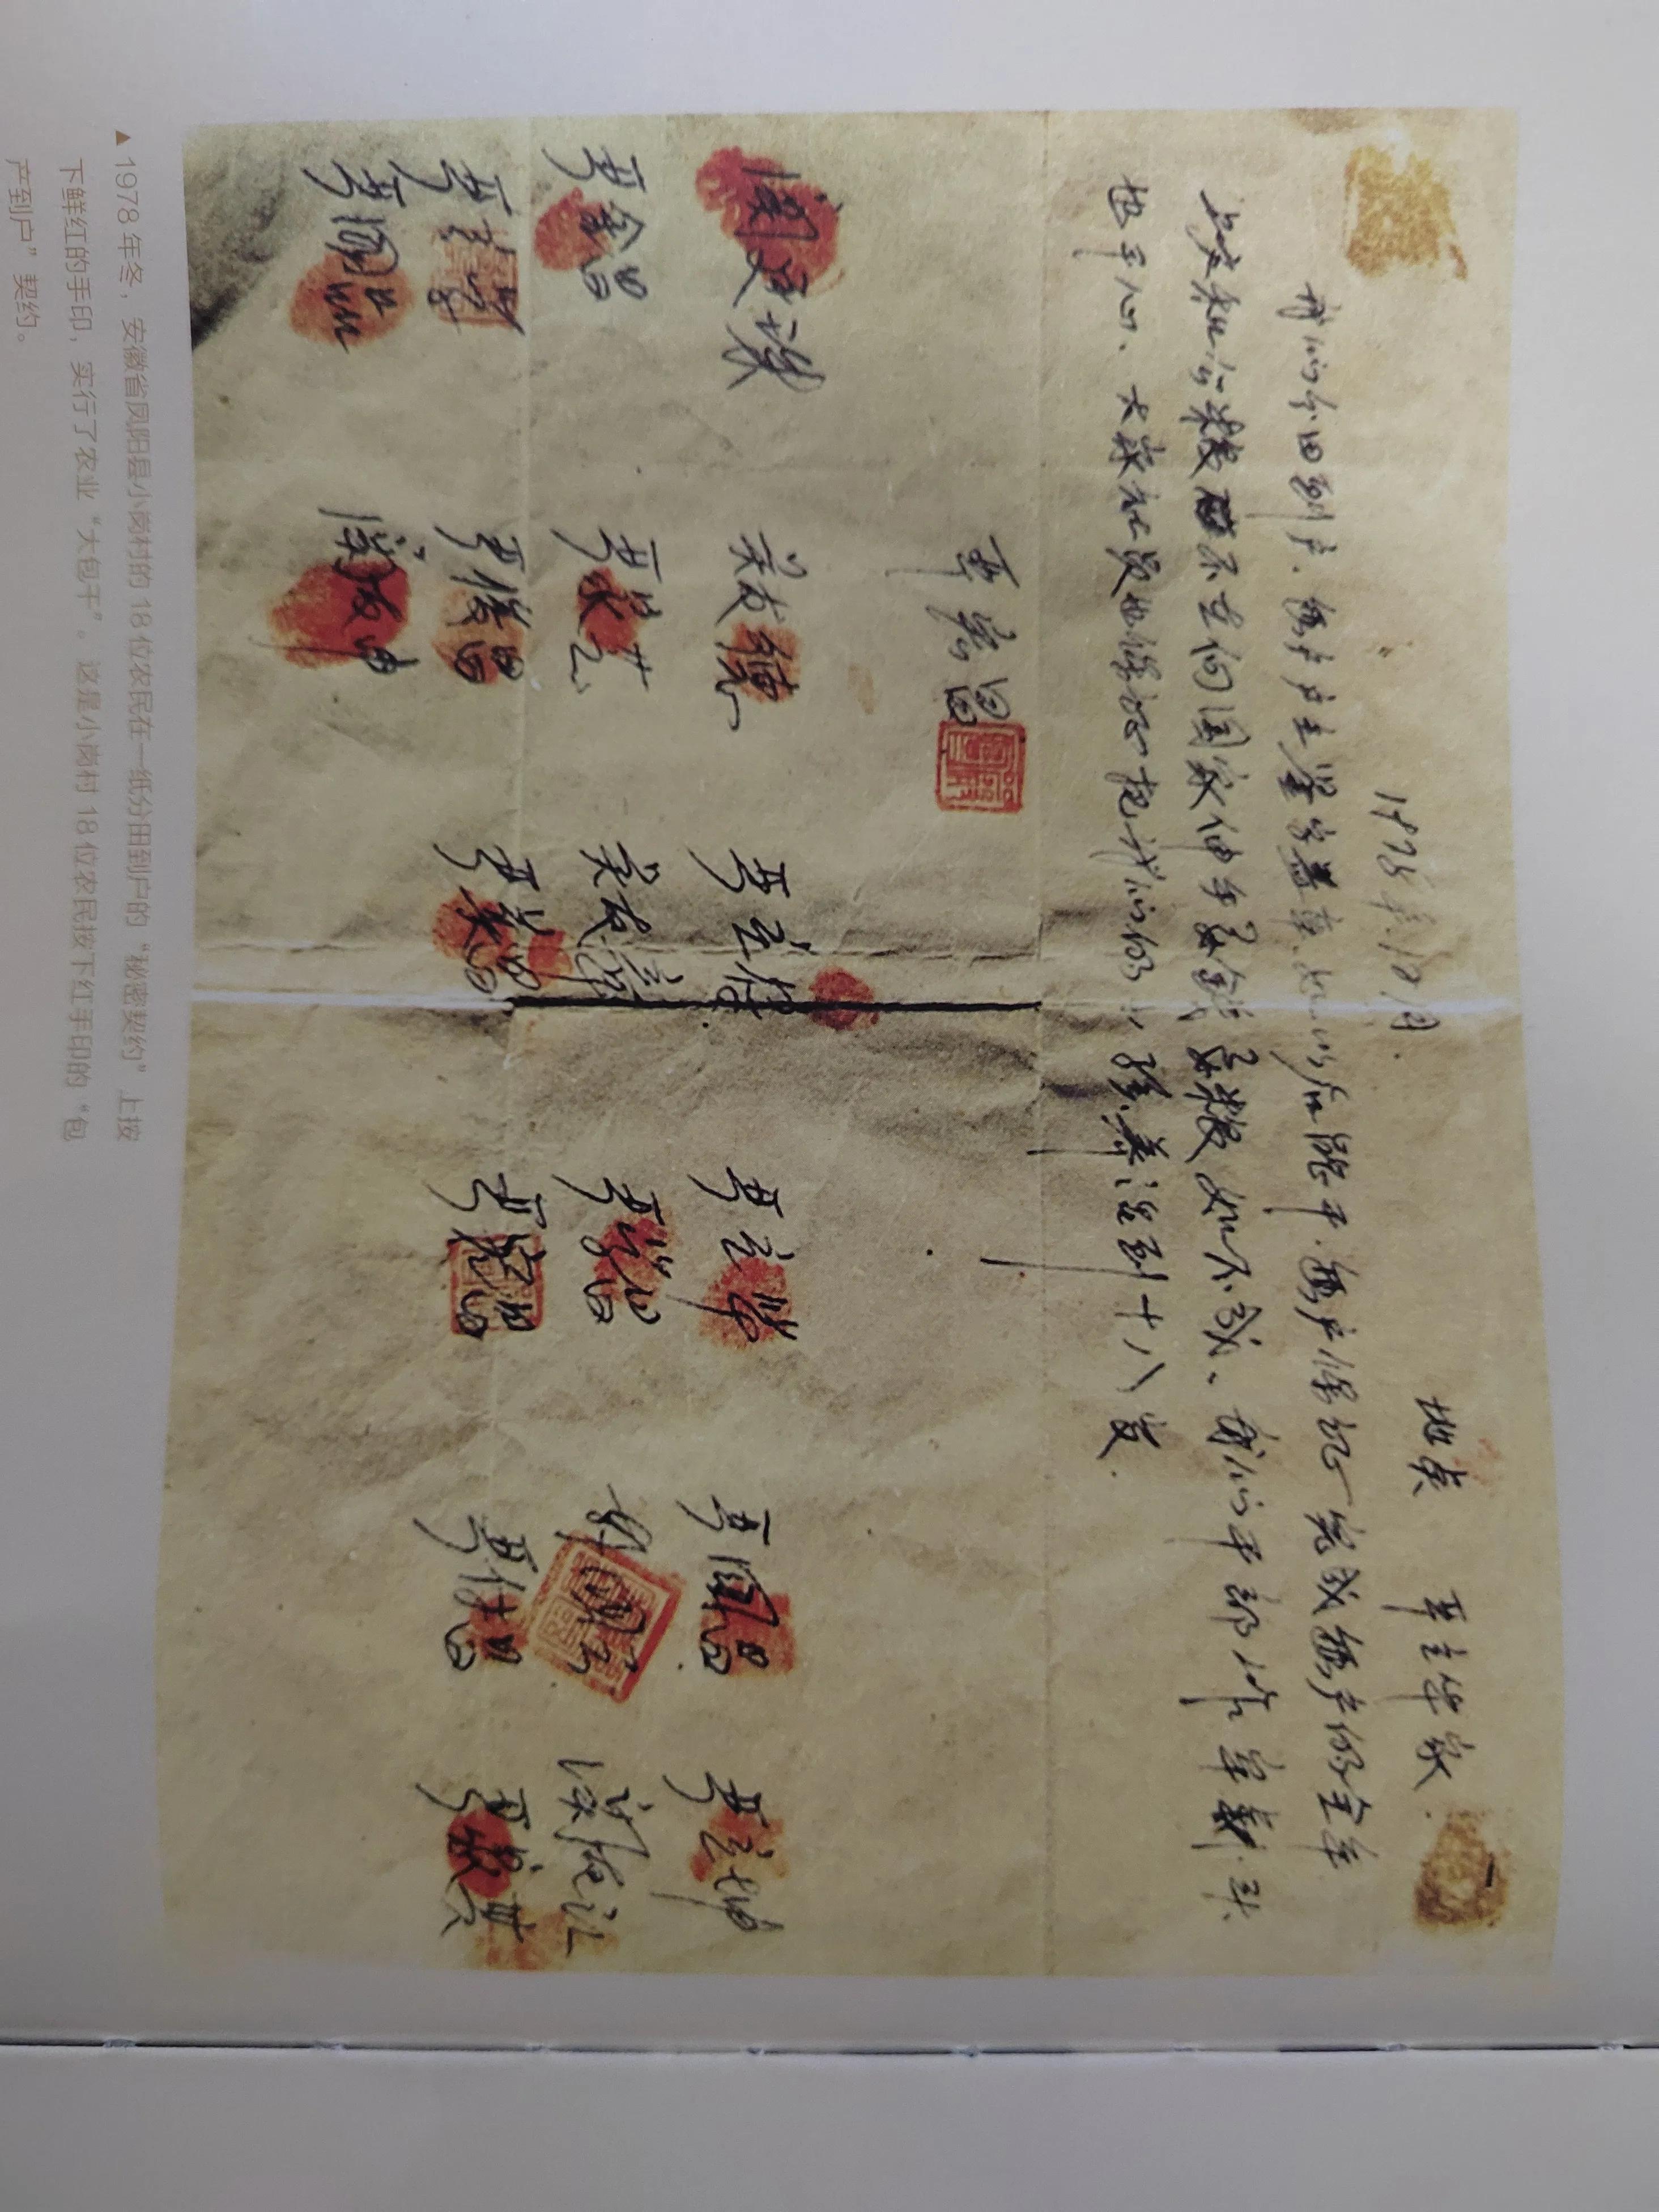 1978年12月 地点 严立华家
我们分田到户,每户户主签字盖章,如以后能干,每户保证完成每户的全年
上交和公粮,不在向国家伸手要钱要粮。如不成,我们干部作牢刹头
也干心,大家社员也保证把我们的小孩养活到十八岁。
严宏昌
关廷珠 关友德 严立付 严立华 严国昌 严立坤
严金昌 严家芝 关友章 严学昌 韩国云 关友江
严立学 严俊昌 严美昌 严宏昌 严付昌 严家其
严国品 关友申
▲1978年冬,安徽省凤阳县小岗村的18位农民在一纸分田到户的“秘密契约”上按
下鲜红的手印,实行了农业“大包干”。这是小岗村18位农民按下红手印的“包
产到户”契约。